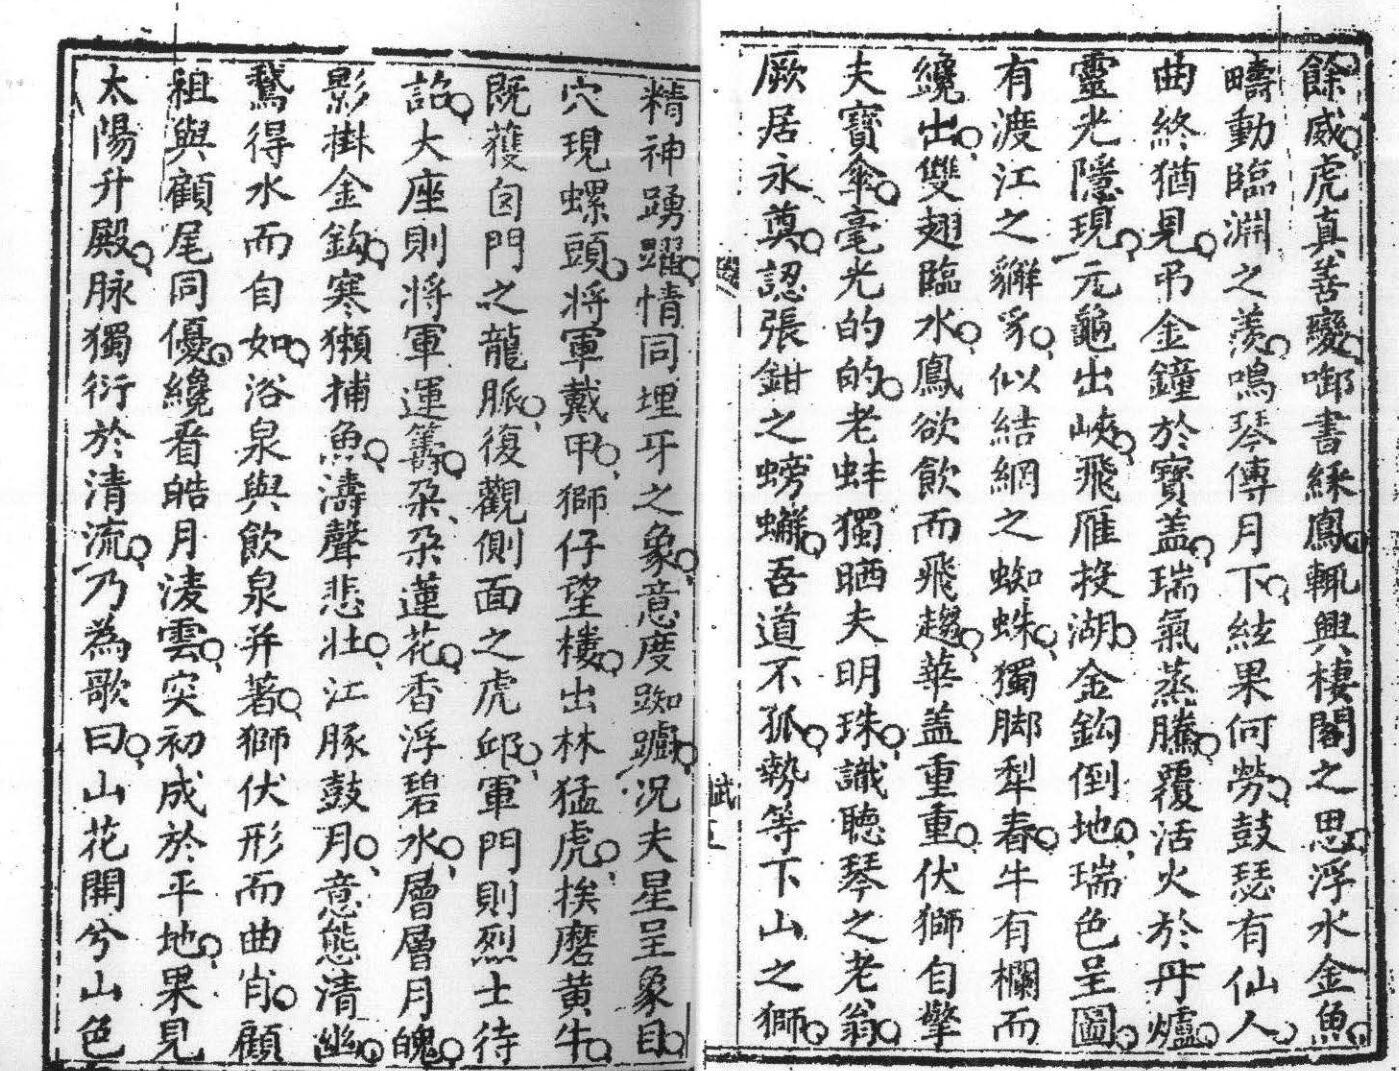 餘威虎真善變啣書綵鳳輒興棲閣之思浮水金魚
疇動臨淵之羨鳴琴傳月下絃果何勞鼓瑟有仙人
曲終猶見吊金鐘於寶盖瑞氣蒸騰覆活火於丹爐
靈光隱現元龜出峽飛雁投湖金鈎倒地瑞色呈圖
有渡江之獬豸似結網之蜘蛛獨脚犁春牛有欄而
纔出雙翅臨水鳳欲飲而飛趨華盖重重伏獅自擎
夫寶傘毫光的的老蚌獨晒夫明珠識聽琴之老翁
厥居永奠認張鉗之螃蠏吾道不孤勢等下山之獅
賦
精神踴躍情同埋牙之象意度踟躕況夫星呈象目
穴現螺頭將軍戴甲獅仔望樓出林猛虎挨磨黃牛
既獲囪門之龍脈復觀側面之虎邱軍門則烈士待
詔大座則將軍運籌朶朶蓮花香浮碧水層層月魄
影掛金鈎寒獺捕魚濤聲悲壯江豚鼓月意態清幽
鵞得水而自如浴泉與飲泉并著獅伏形而曲肖顧
祖與顧尾同優纔看皓月凌雲突初成於平地果見
太陽升殿脉獨衍於清流乃為歌曰山花開兮山色